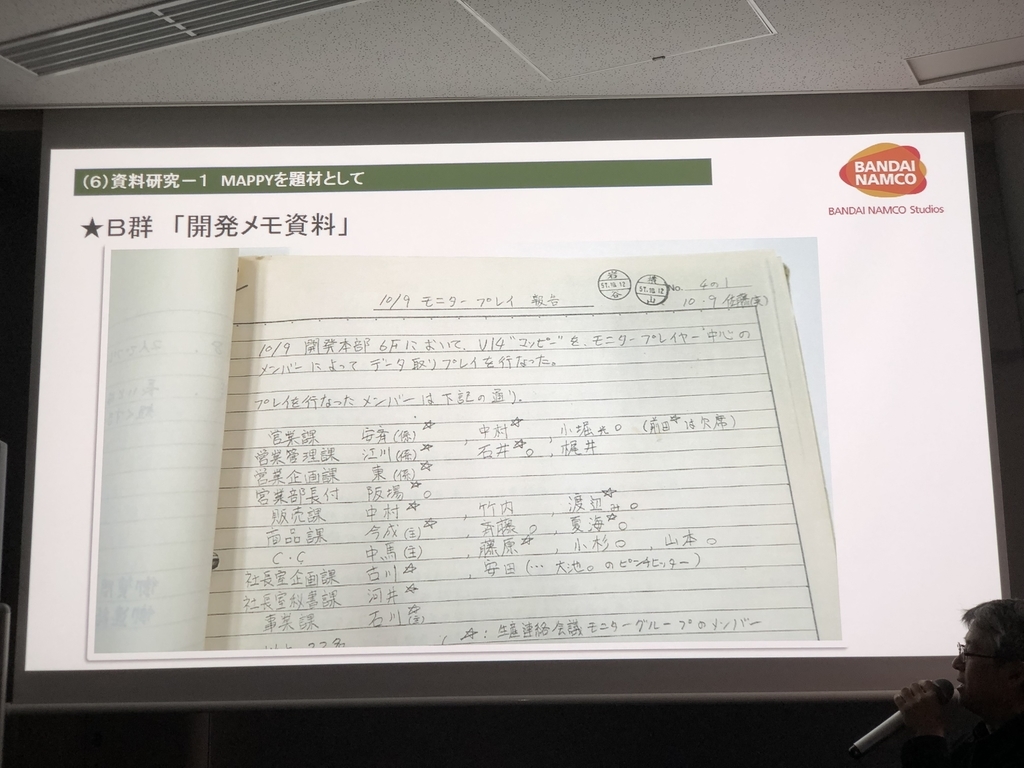 (6)資料研究-1 MAPPYを題材として
BANDAI
NAMCO
BANDAI NAMCO Studios
★B群 「開発メモ資料」
岩
57.10.12
谷
57.10.12
山
No. 4の1
10/9 モニタープレイ 報告
10.9
10/9 開発本部 6Fにおいて、V14"マッピー"を、モニタープレイヤー中心の
メンバーによって データ取りプレイを行なった。
プレイを行なった メンバーは下記の通り.
営業課 安斉(係)☆ , 中村☆ , 小堀 ○ (前田☆は欠席)
営業管理課 江川(係) 石井☆○ , 梶井
営業企画課 東(係)☆
営業部長付 阪場☆○
販売課 中村☆ , 竹内 , 渡辺み☆○
商品課 今成(主)☆ , 斉藤○ , 夏海☆○
C.C 中馬(主) , 藤原☆ , 小杉○ 山本○
社長室企画課 古川☆ , 安田(… 大池○のピンチヒッター)
社長室秘書課 河井☆
事業課 石川☆
, ☆:生産連絡会議モニターグループのメンバー